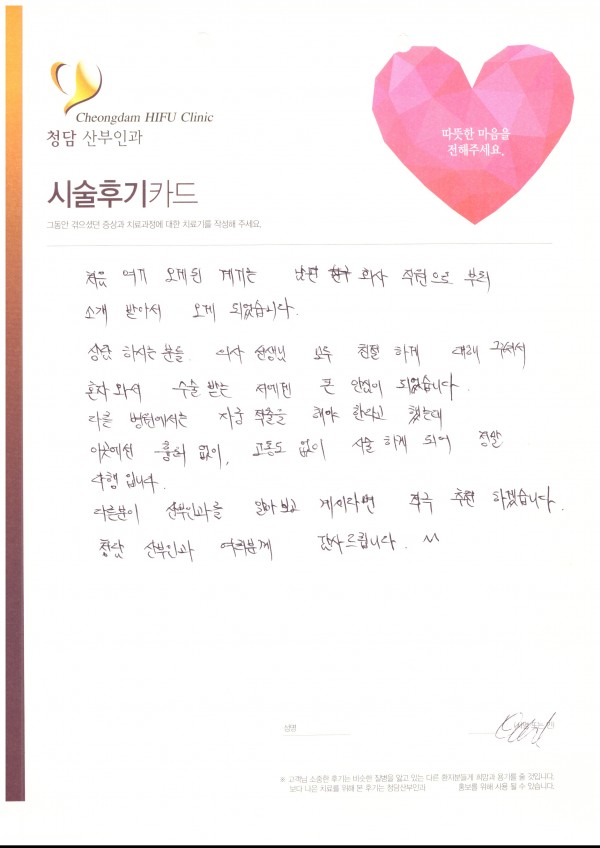 Cheongdam HIFU Clinic
청담 산부인과
따뜻한 마음을
전해주세요.
시술후기카드
그동안 겪으셨던 증상과 치료과정에 대한 치료기를 작성해 주세요.
처음 여기 오게된 계기는 남편 친구 회사 직원으로 부터
소개 받아서 오게 되었습니다.
상담 하시는 분들. 의사 선생님 모두 친절 하게 대해 주셔서
혼자 와서 수술 받는 저에겐 큰 안심이 되었습니다.
다른 병원에서는 자궁 적출을 해야 한다고 했는데
이곳에선 흉터 없이, 고통도 없이 시술 하게 되어 정말
다행 입니다.
다른분이 산부인과를 알아보고 계시다면 적극 추천 하겠습니다.
청담 산부인과 여러분께 감사드립니다.
성명
※ 고객님 소중한 후기는 비슷한 질병을 앓고 있는 다른 환자분들게 희망과 용기를 줄 것입니다.
보다 나은 치료를 위해 본 후기는 청담산부인과 홍보를 위해 사용 될 수 있습니다.